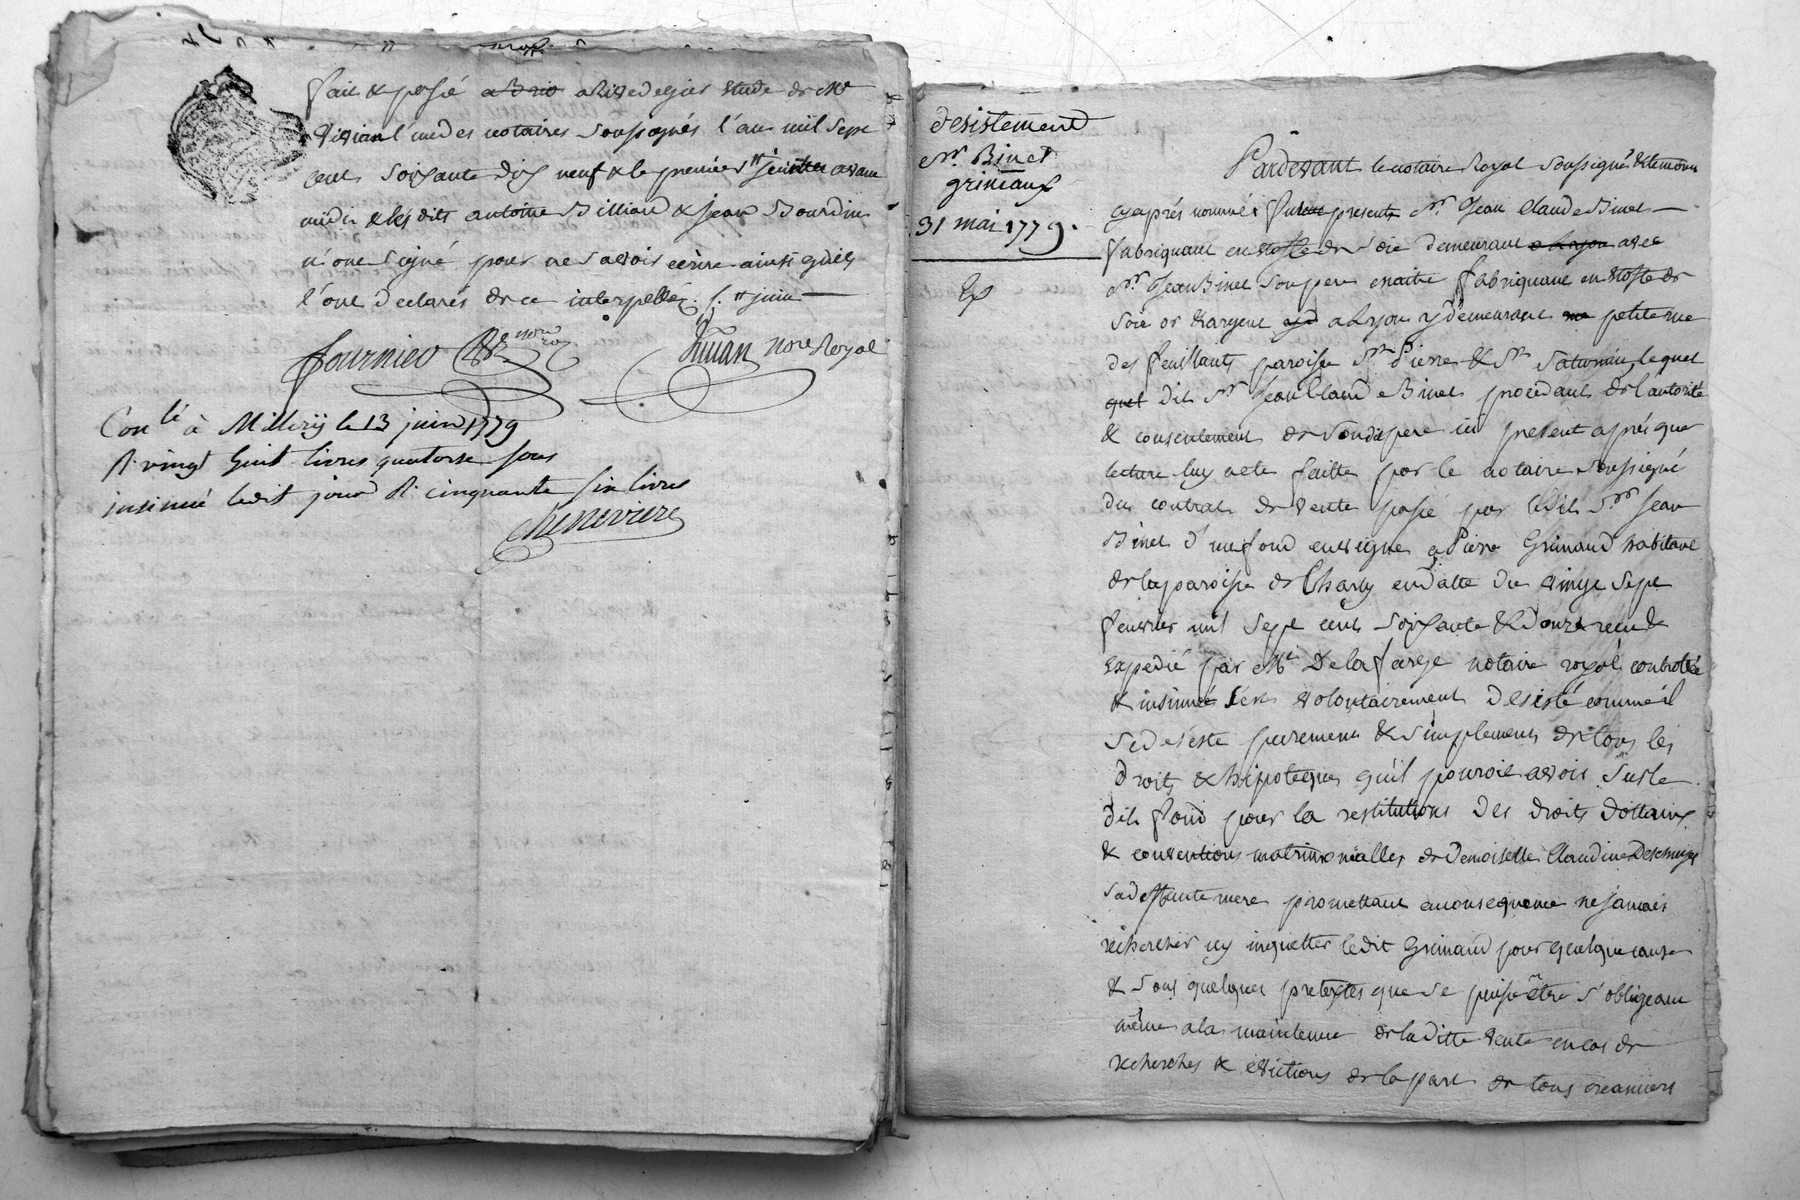 fait & passé a Brio a Rivedegier Etude de Me
Vivian l'un des notaires soussignés l'an mil sept
cent soixante dix neuf & le premier juillet avant
midi & lesdits antoine Billiard & Jean Bourdin
n'ont signé pour ne savoir écrire ainsi qu'ils
l'ont declarés de ce interpellés. juin
fournier
Vivian nore Royal
Conlé à Millerÿ le 13 juin 1779
R. vingt huit livres quatorse sous
insinué ledit jour R. cinquante six livres
Chenevière
desistement
Sr. Binet
grimaux
31 mai 1779.
Exp
Pardevant le notaire Royal soussigné & temoins
cyaprés nommés fut present Sr. Jean Claude Binet
fabriquant en etoffe de soie demeurant a Lyon avec
Sr. Jean Binet son pere maitre fabriquant en etoffe de
soie or & argent a Lyon y demeurant petite rue
des feuillants paroisse St. Pierre & St. Saturnin, lequel
quel dit Sr. Jean Claude Binet procedant de l'autorité
& consentement de sondit pere ici present aprés que
lecture luy a ete faitte par le notaire soussigné
du contrat de vente passé par ledit Sr. Jean
Binet d'un fond en vigne a Pierre Grimaud habitant
de la paroisse de Charly en datte du vingt sept
fevrier mil sept cent soixante & douze recu &
expedié par Me. Delafarge notaire royal controllé
& insinué s'est volontairement desisté comme il
se desiste purement & simplement de tous les
droits & hipoteques qu'il pouroit avoir sur le
dit fond pour la restitutions des droits dottaux
& conventions matrimonialles de Demoiselle Claudine
sa deffunte mere promettant en consequence ne jamais
rechercher ny inquietter ledit Grimaud pour quelque cause
& sous quelques pretextes que ce puisse être s'obligeant
même a la maintenue de laditte vente en cas de
recherches & evictions de la part de tous creanciers